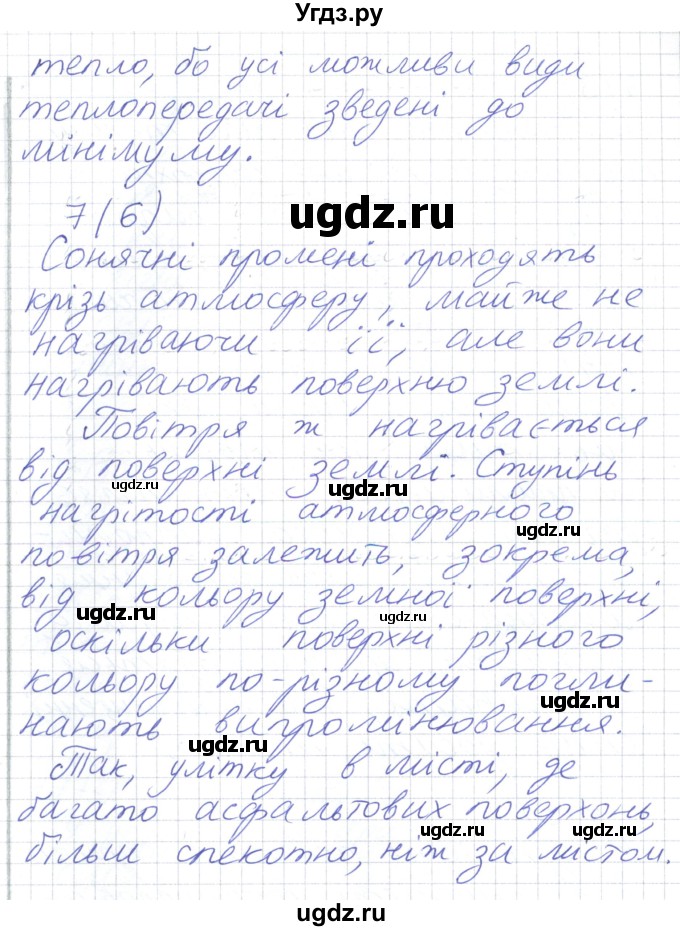 Угдз.ру
тепло, бо усі можливи види
теплопередачі зведені до
мінімуму.
7(6)
ugdz.ru
Сонячні промені проходять
крізь атмосферу, майже не
нагріваючи її, але вони
нагрівають поверхню землі.
Повітря ж нагрівається
від поверхні землі. Ступінь
ugdz.ru
ugdz.ru
нагрітості атмосферного
повітря залежить, зокрема,
ugdz.ru
від кольору земної поверхні,
ugdz.ru
ugdz.ru
оскільки поверхні різного
кольору по-різному погли-
ugdz.ru
нають випромінювання.
ugdz.ru
Так, улітку в місті, де
багато асфальтових поверхонь,
ugdz.ru
ugdz.ru
більш спекотно, ніж за містом.
ugdz.ru